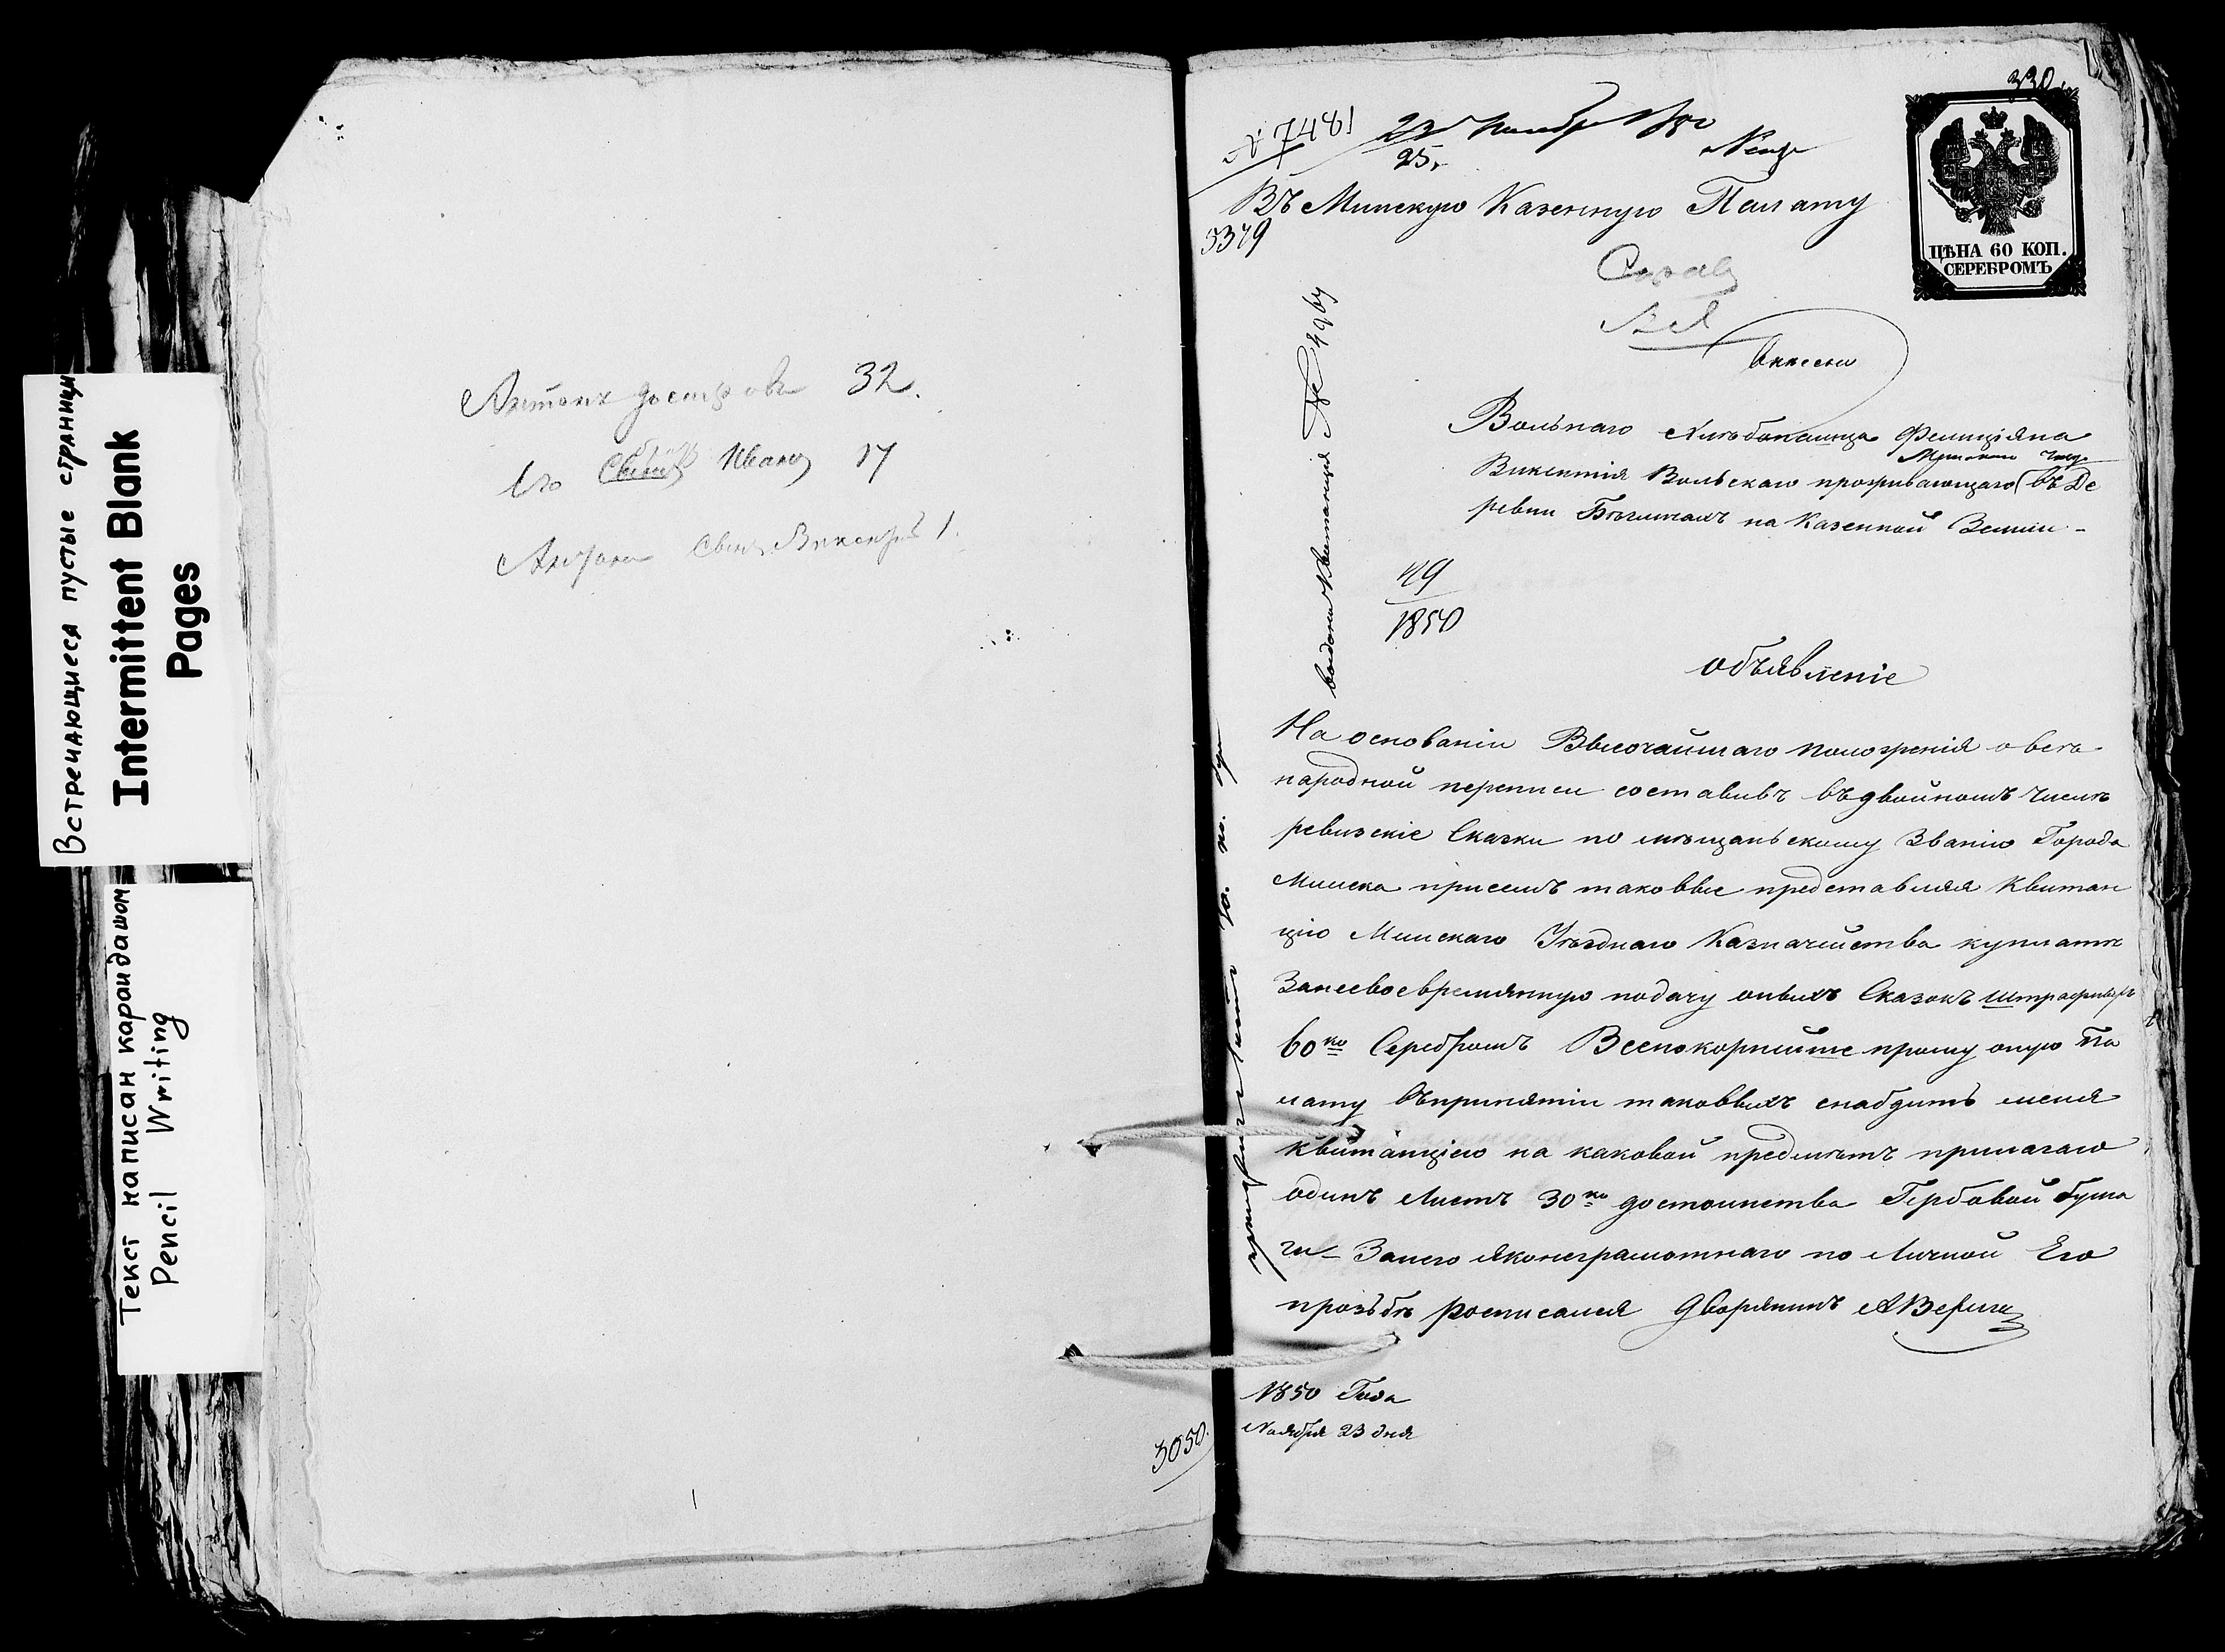 Встречающиеся пустые страницы
Intermittent Blank
Pages
Текст написан карандашом
Pencil Writing
Антонъ 32.
Его Иванъ 17
Антона Сынъ Викентій 1.
3050.
330
№ 7481 23 Ноября 1850
25.
Въ Минскую Казенную Палату
3379
ЦѢНА 60 КОП.
СЕРЕБРОМЪ
внесены
Вольнаго Хлѣбопашца Фелиціяна
Викентія Вольскаго проживающаго въ Де
ревни на Казенной Земли -
выдана Квитанція
49
1850
объявленіе
На основаніи Высочайшаго положенія о все
народной переписи составивъ въдвойномъ числѣ
ревизскіе Сказки по мѣщаньскому Званію Города
Минска присемъ таковые представляя Квитан
цію Минскаго Уѣзднаго Казначейства куплатѣ
Занесвоевремянную подачу оныхъ Сказокъ
60 ко Серебромъ Всепокорнейше прошу оную Па
лату Опринятіи таковыхъ снабдить меня
квитанціею на каковой предмѣтъ прилагаю
одинъ Листъ 30 ко достоинства Гербовой бума
ги - Занего яконеграмотнаго по Личной Его
прозьбѣ росписался Дворянинъ А Верига
1850 Года
Ноября 23 дня